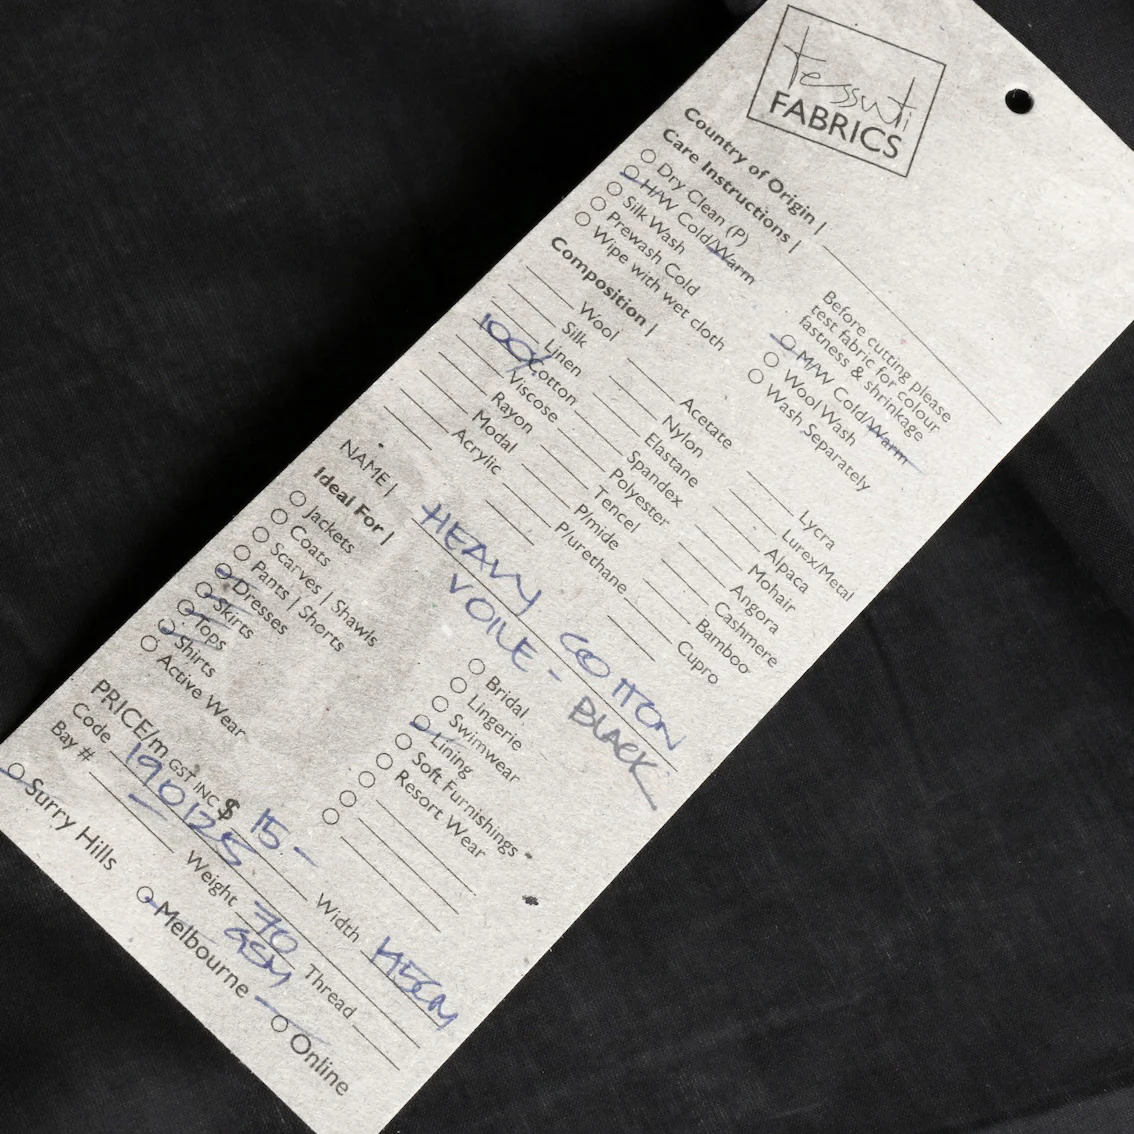 tessuti
FABRICS
Country of Origin |
Care Instructions |
Dry Clean (P)
H/W Cold/Warm
Silk Wash
Prewash Cold
Wipe with wet cloth
Before cutting please
test fabric for colour
fastness & shrinkage
M/W Cold/Warm
Wool Wash
Wash Separately
Composition |
Wool
Silk
Linen
100% Cotton
Viscose
Rayon
Modal
Acrylic
Acetate
Nylon
Elastane
Spandex
Polyester
Tencel
P/mide
P/urethane
Lycra
Lurex/Metal
Alpaca
Mohair
Angora
Cashmere
Bamboo
Cupro
NAME | HEAVY COTTON
VOILE - BLACK
Ideal For |
Jackets
Coats
Scarves | Shawls
Pants | Shorts
Dresses
Skirts
Tops
Shirts
Active Wear
Bridal
Lingerie
Swimwear
Lining
Soft Furnishings
Resort Wear
PRICE/m GST INC $ 15-
Code 190125 Width 145CM
Bay # Weight 70 GSM Thread
Surry Hills Melbourne Online